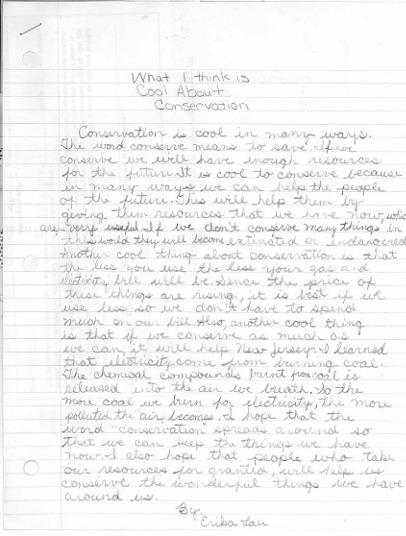 What I think is
Cool About
Conservation
Conservation is cool in many ways.
The word conserve means to save. If we
conserve we will have enough resources
for the future. It is cool to conserve because
in many ways we can help the people
of the future. This will help them by
giving them resources that we have now, which
are very useful. If we don't conserve many things in
this world they will become extincted or endangered.
Another cool thing about conservation is that
the less you use the less your gas and
electricity bill will be. Since the price of
these things are rising, it is best if we
use less so we don't have to spend
much on our bill. Also, another cool thing
is that if we conserve as much as
we can, it will help New Jersey. I learned
that electricity come from burning coal.
The chemical compounds from coal is
released into the air we breath. So the
more coal we burn for electricity, the more
polluted the air becomes. I hope that the
word "conservation" spreads around so
that we can keep the things we have
now. I also hope that people who take
our resources for granted, will help us
conserve the wonderful things we have
around us.
By,
Erika Lau